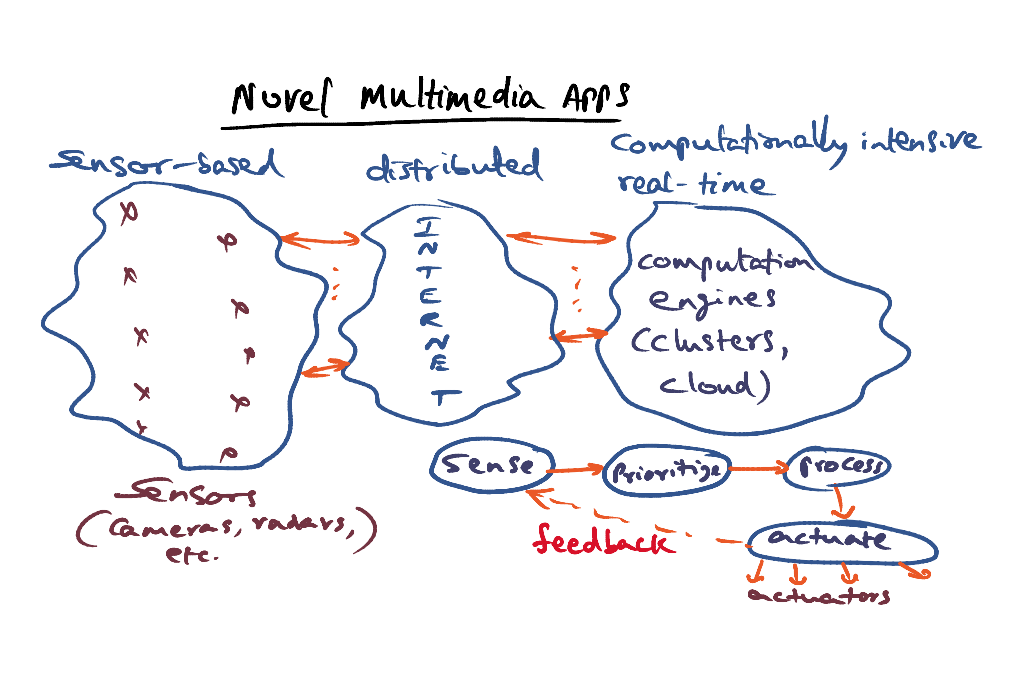 Novel Multimedia Apps
Sensor-based
distributed
computationally intensive
real-time
INTERNET
computation
engines
(clusters,
cloud)
Sensors
(cameras, radars,
etc.)
sense
prioritize
process
actuate
feedback
actuators